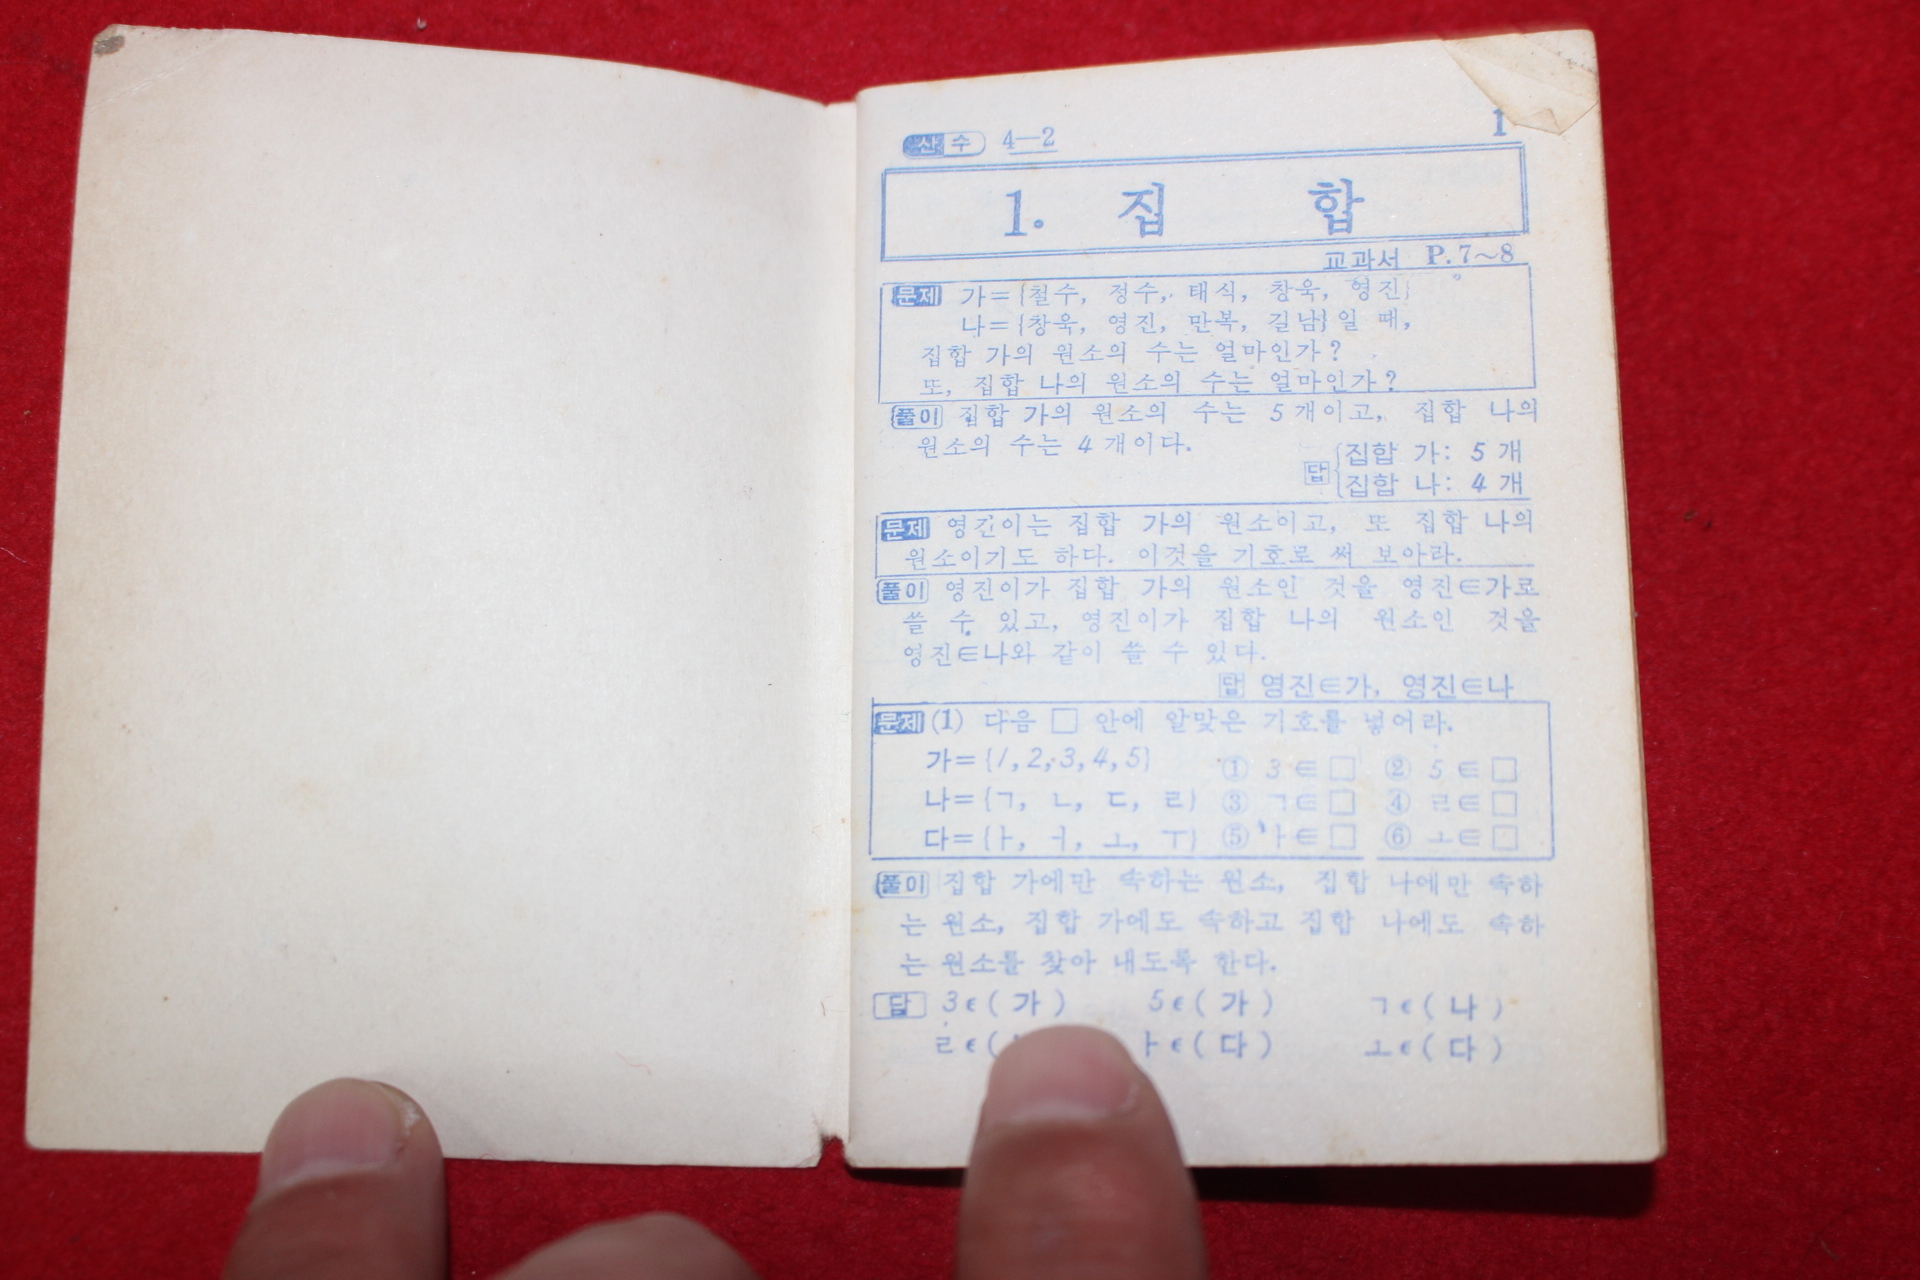 산수 4—2
1
1. 집 합
교과서 P.7~8
문제 가={철수, 정수, 태식, 창욱, 영진}
나={창욱, 영진, 만복, 길남}일 때,
집합 가의 원소의 수는 얼마인가?
또, 집합 나의 원소의 수는 얼마인가?
풀이 집합 가의 원소의 수는 5개이고, 집합 나의
원소의 수는 4개이다.
답 {집합 가: 5개
집합 나: 4개
문제 영진이는 집합 가의 원소이고, 또 집합 나의
원소이기도 하다. 이것을 기호로 써 보아라.
풀이 영진이가 집합 가의 원소인 것을 영진∈가로
쓸 수 있고, 영진이가 집합 나의 원소인 것을
영진∈나와 같이 쓸 수 있다.
답 영진∈가, 영진∈나
문제 (1) 다음 □ 안에 알맞은 기호를 넣어라.
가={1, 2, 3, 4, 5} ① 3∈□ ② 5∈□
나={ㄱ, ㄴ, ㄷ, ㄹ} ③ ㄱ∈□ ④ ㄹ∈□
다={ㅏ, ㅓ, ㅗ, ㅜ} ⑤ ㅏ∈□ ⑥ ㅗ∈□
풀이 집합 가에만 속하는 원소, 집합 나에만 속하
는 원소, 집합 가에도 속하고 집합 나에도 속하
는 원소를 찾아 내도록 한다.
답 3∈( 가 ) 5∈( 가 ) ㄱ∈( 나 )
ㄹ∈( ㅏ∈( 다 ) ㅗ∈( 다 )